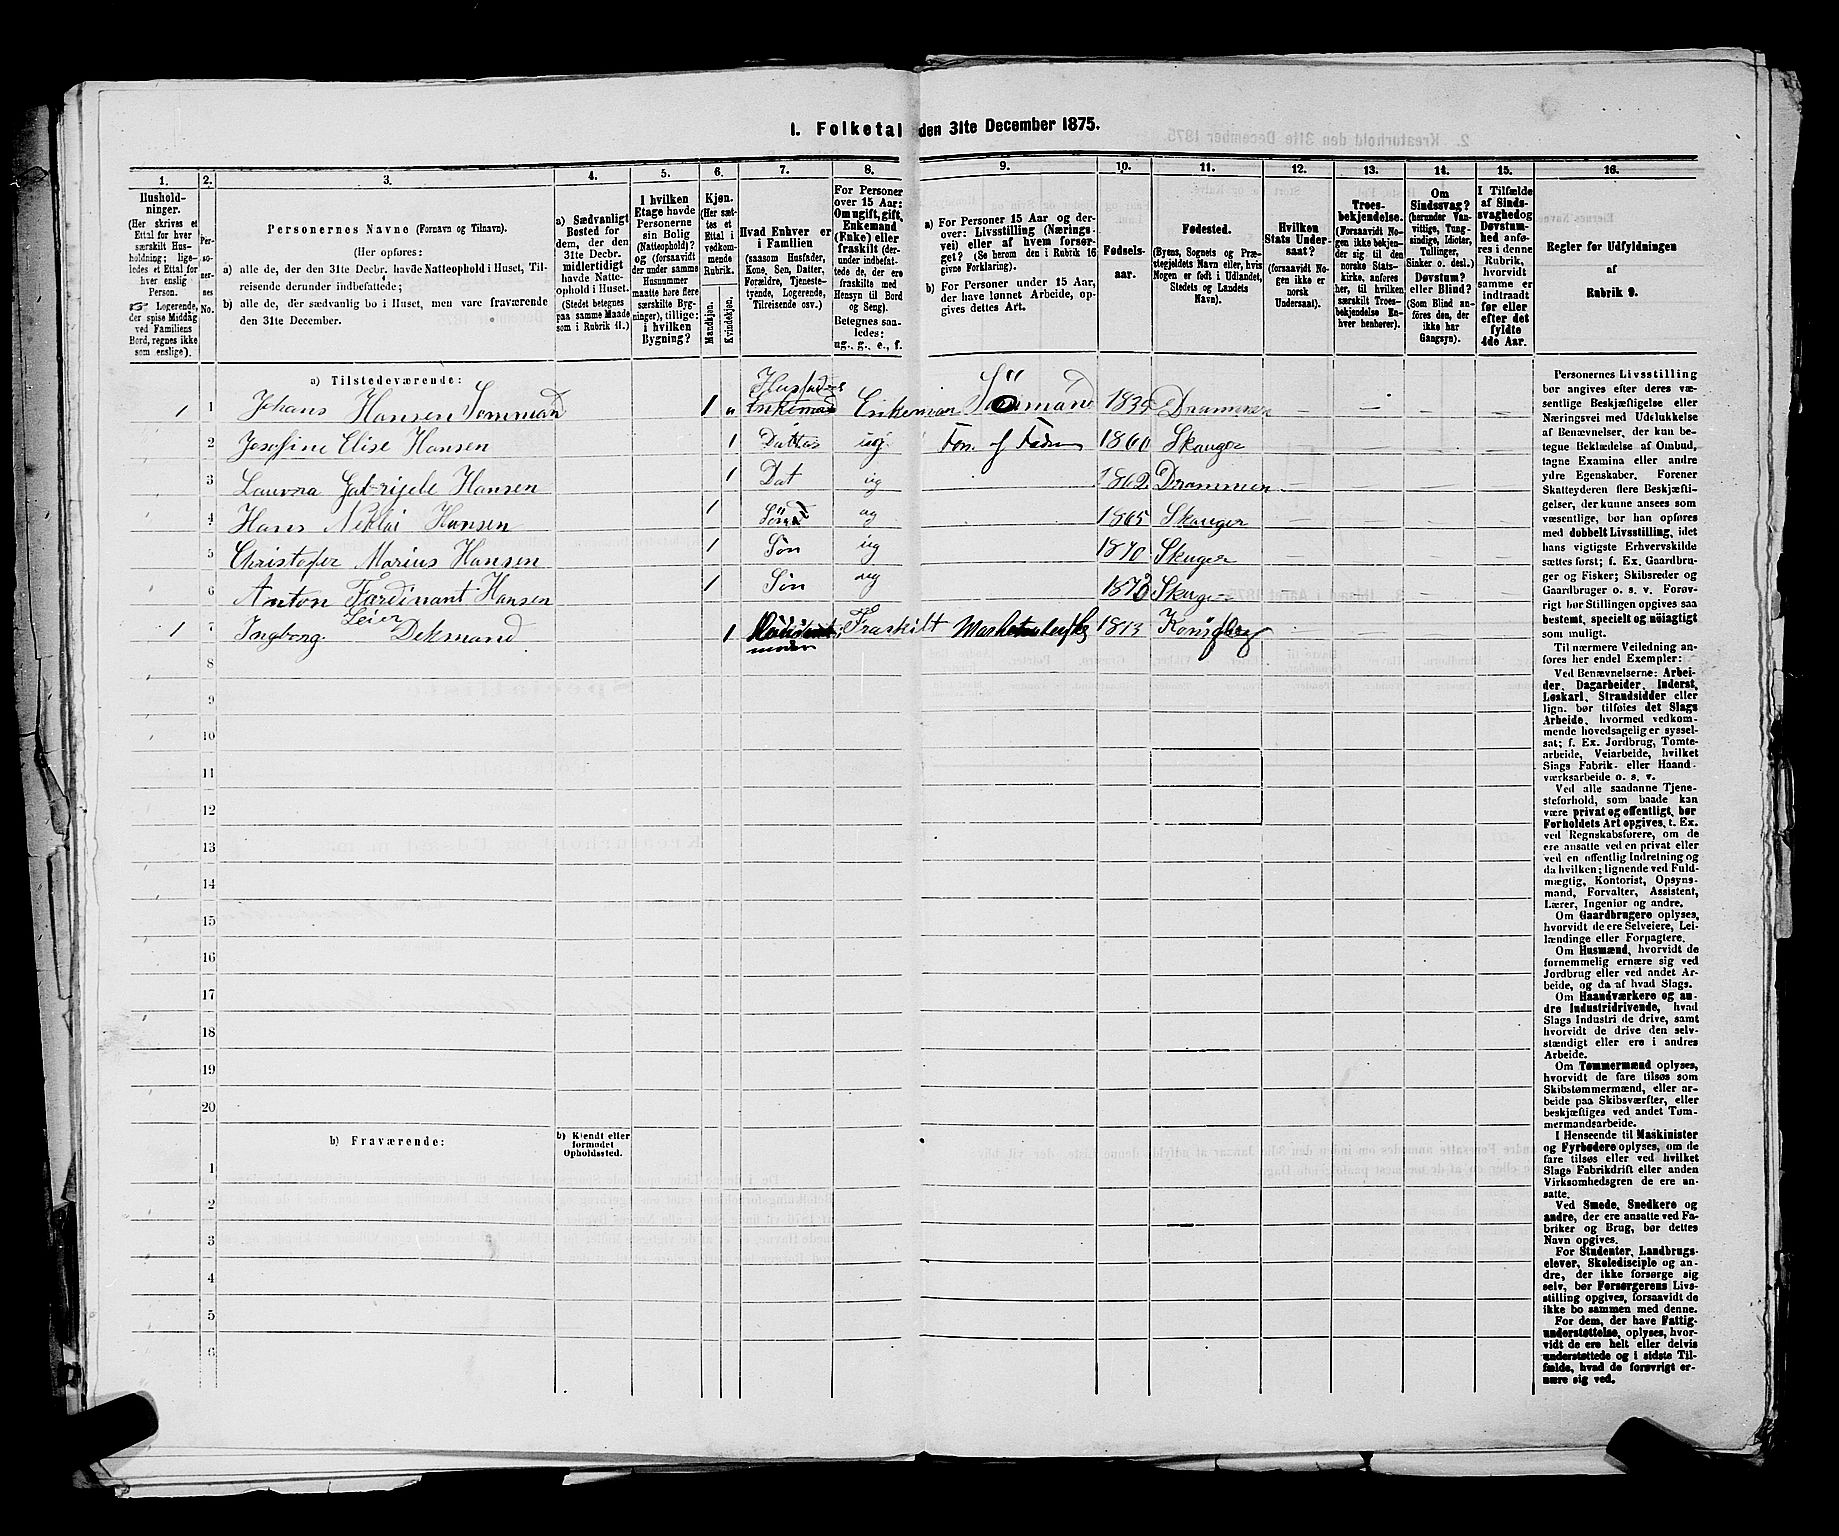 1. Folketal den 31te December 1875.
1.
2.
3.
4.
5.
6.
7.
8.
9.
10.
11.
12.
13.
14.
15.
16.
Hushold-
ninger.
(Her skrives et
Ettal for hver
særskilt Hus-
holdning; lige-
ledes et Ettal for
hver enslig
Person.
☞ Logerende,
der spise Middag
ved Familiens
Bord, regnes ikke
som enslige).
Per-
so-
ner-
nes
No.
Personernes Navne (Fornavn og Tilnavn).
(Her opføres:
a) alle de, der den 31te Decbr. havde Natteophold i Huset, Til-
reisende derunder indbefattede;
b) alle de, der sædvanlig bo i Huset, men vare fraværende
den 31te December.
a) Sædvanligt
Bosted for
dem, der den
31te Decbr.
midlertidigt
havde Natte-
ophold i Huset.
(Stedet betegnes
paa samme Maade
som i Rubrik 11.)
I hvilken
Etage havde
Personerne
sin Bolig
(Natteophold)?
og (forsaavidt
der under samme
Husnummer
maatte høre flere
særskilte Byg-
ninger), tillige:
i hvilken
Bygning?
Kjøn.
(Her sæt-
tes et
Ettal i
vedkom-
mende
Rubrik.
Mandkjøn.
Kvindekjøn.
Hvad Enhver er
i Familien
(saasom Husfader,
Kone, Søn, Datter,
Forældre, Tjeneste-
tyende, Logerende,
Tilreisende osv.)
For Personer
over 15 Aar:
Om ugift, gift,
Enkemand
(Enke) eller
fraskilt (der-
under indbefat-
tede de, der ere
fraskilte med
Hensyn til Bord
og Seng).
Betegnes saa-
ledes:
ug., g., e., f.
a) For Personer 15 Aar og der-
over: Livsstilling (Nærings-
vei) eller af hvem forsør-
get? (Se herom den i Rubrik 16
givne Forklaring).
b) For Personer under 15 Aar,
der have lønnet Arbeide, op-
gives dettes Art.
Fødsels-
aar.
Fødested.
(Byens, Sognets og Præ-
stegjeldets Navn eller, hvis
Nogen er født i Udlandet,
Stedets og Landets
Navn).
Hvilken
Stats Under-
saat?
(forsaavidt No-
gen ikke er
norsk
Undersaat).
Troes-
bekjendelse.
(Forsaavidt No-
gen ikke bekjen-
der sig til den
norske Stats-
kirke, anføres
her, til hvilken
særskilt Troes-
bekjendelse En-
hver henhører).
Om
Sindssvag?
(herunder Van-
vittige, Tung-
sindige, Idioter,
Tullinger,
Sinker o. desl.)
Døvstum?
eller Blind?
(Som Blind an-
føres den, der
ikke har
Gangsyn).
I Tilfælde
af Sinds-
svaghed og
Døvstum-
hed anfø-
res i denne
Rubrik,
hvorvidt
samme er
indtraadt
før eller
efter det
fyldte
4de Aar.
Regler for Udfyldningen
af
Rubrik 9.
a) Tilstedeværende:
1 1 Johans Hansen Sømmand 1 Husfader Enkemand Enkeman Sømand 1835 Drammen
2 Josefine Elise Hansen 1 Datter ug. For. f Fader 1860 Skauger
3 Laura Gabrijele Hansen 1 Dat ug 1862 Drammen
4 Hans Niklai Hansen 1 Søn ug 1865 Skauger
5 Christofer Marius Hansen 1 Søn ug 1870 Skuger
6 Anton Færdinant Hansen 1 Søn ug 1873 Skuger
1 7 Ingborg Leier Deksmand 1 moder Fraskilt 1813 Konigberg
8
9
10
11
12
13
14
15
16
17
18
19
20
b) Fraværende:
b) Kjendt eller
formodet
Opholdssted.
1
2
3
4
5
6
Personernes Livsstilling
bør angives efter deres væ-
sentlige Beskjæftigelse eller
Næringsvei med Udelukkelse
af Benævnelser, der kun be-
tegne Beklædelse af Ombud,
tagne Examina eller andre
ydre Egenskaber. Forener
Skatteyderen flere Beskjæfti-
gelser, der kunne ansees som
væsentlige, bør han opføres
med dobbelt Livsstilling, idet
hans vigtigste Erhvervskilde
sættes først; f. Ex. Gaardbru-
ger og Fisker; Skibsreder og
Gaardbruger o. s. v. Forøv-
rigt bør Stillingen opgives saa
bestemt, specielt og nøiagtigt
som muligt.
Til nærmere Veiledning an-
føres her endel Exempler:
Ved Benævnelserne: Arbei-
der, Dagarbeider, Inderst,
Løskarl, Strandsidder eller
lign. bør tilføies det Slags
Arbeide, hvormed vedkom-
mende hovedsagelig er syssel-
sat; f. Ex. Jordbrug, Tomte-
arbeide, Veiarbeide, hvilket
Slags Fabrik- eller Haand-
værksarbeide o. s. v.
Ved alle saadanne Tjene-
steforhold, som baade kan
være privat og offentligt, bør
Forholdets Art opgives, t. Ex.
ved Regnskabsførere, om de
ere ansatte ved en privat eller
ved en offentlig Indretning og
da hvilken; lignende ved Fuld-
mægtig, Kontorist, Opsyns-
mand, Forvalter, Assistent,
Lærer, Ingeniør og andre.
Om Gaardbrugere oplyses,
hvorvidt de ere Selveiere, Lei-
lændinge eller Forpagtere.
Om Husmænd, hvorvidt de
fornemmelig ernære sig ved
Jordbrug eller ved andet Ar-
beide, og da af hvad Slags.
Om Haandværkere og an-
dre Industridrivende, hvad
Slags Industri de drive, samt
hvorvidt de drive den selv-
stændigt eller ere i andres
Arbeide.
Om Tømmermænd oplyses,
hvorvidt de fare tilsøs som
Skibstømmermænd, eller ar-
beide paa Skibsværfter, eller
beskjæftiges ved andet Tøm-
mermandsarbeide.
I Henseende til Maskinister
og Fyrbødere oplyses, om de
fare tilsøs eller ved hvilket
Slags Fabrikdrift eller anden
Virksomhedsgren de ere an-
satte.
Ved Smede, Snedkere og
andre, der ere ansatte ved Fa-
briker og Brug, bør dettes
Navn opgives.
For Studenter, Landbrugs-
elever, Skoledisciple og an-
dre, der ikke forsørge sig
selv, bør Forsørgerens Livs-
stilling opgives, forsaavidt de
ikke bo sammen med denne.
For dem, der have Fattig-
understøttelse, oplyses, hvor-
vidt de ere helt eller delvis
understøttede og i sidste Til-
fælde, hvad de forøvrigt er-
nære sig ved.